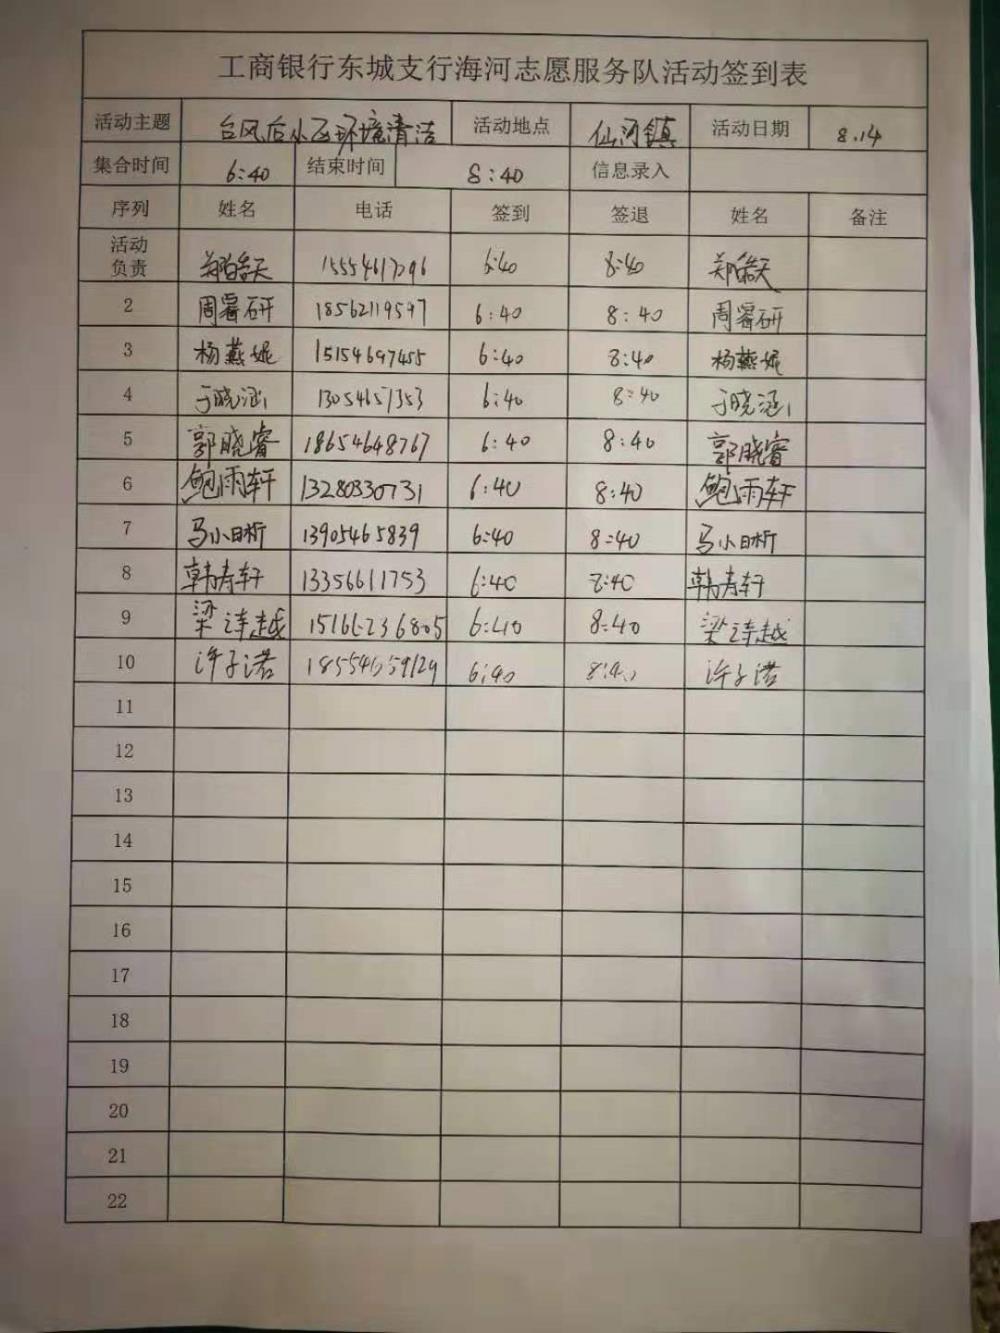 工商银行东城支行海河志愿服务队活动签到表
活动主题 台风后小区环境清洁 活动地点 仙河镇 活动日期 8.14
集合时间 6:40 结束时间 8:40 信息录入
序列 姓名 电话 签到 签退 姓名 备注
活动
负责 6:40 8:40
2 周睿研 18562119597 6:40 8:40 周睿研
3 杨燕妮 15154697455 6:40 8:40 杨燕妮
4 于晓涵 13054651353 6:40 8:40 于晓涵
5 郭晓睿 18654648767 6:40 8:40 郭晓睿
6 鲍雨轩 13280330731 6:40 8:40 鲍雨轩
7 马小日析 13905465839 6:40 8:40 马小日析
8 韩寿轩 13356611753 6:40 8:40 韩寿轩
9 梁诗越 15166236805 6:40 8:40 梁诗越
10 许子诺 18554659129 6:40 8:40 许子诺
11
12
13
14
15
16
17
18
19
20
21
22